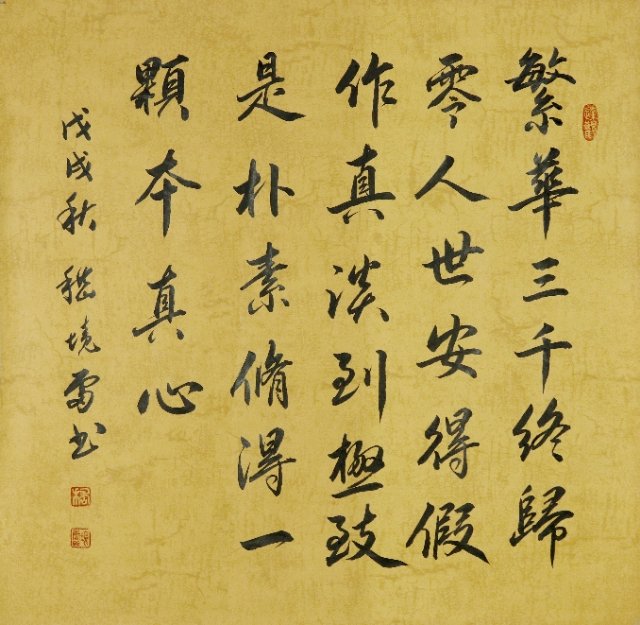 繁華三千終歸
零人世安得假
作真淡到極致
是朴素脩得一
顆本真心
戊戌秋 嵇境雷书